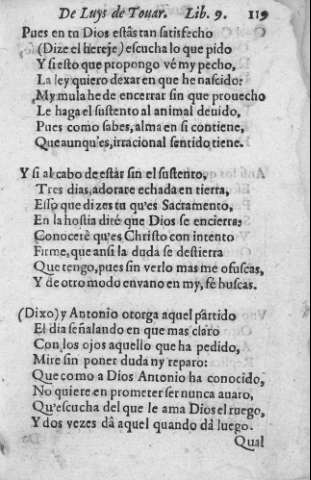 De Luys de Touar. Lib. 9. 119
Pues en tu Dios estâs tan satisfecho
(Dize el hereje) escucha lo que pido
Y si esto que propongo vé my pecho,
La ley quiero dexar en que he nascido:
My mula he de encerrar sin que prouecho
Le haga el sustento al animal deuido,
Pues como sabes, alma en si contiene,
Que aunqu'es, irracional sentido tiene.
Y si al cabo de estàr sin el sustento,
Tres dias, adorare echada en tierra,
Esso que dizes tu qu'es Sacramento,
En la hostia diré que Dios se encierra:
Conocerè qu'es Christo con intento
Firme, que ansi la duda se destierra
Que tengo, pues sin verlo mas me ofuscas,
Y de otro modo envano en my, fè buscas.
(Dixo) y Antonio otorga aquel partido
El dia señalando en que mas claro
Con los ojos aquello que ha pedido,
Mire sin poner duda ny reparo:
Que como a Dios Antonio ha conocido,
No quiere en prometer ser nunca auaro,
Qu'escucha del que le ama Dios el ruego,
Y dos vezes dâ aquel quando dâ luego.
Qual